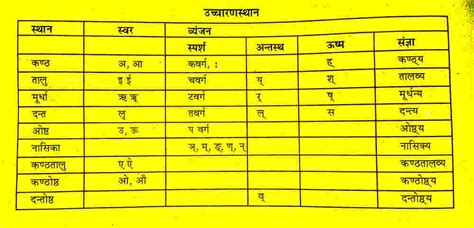 उच्चारणस्थान
स्थान स्वर व्यंजन
स्पर्श अन्तस्थ ऊष्म संज्ञा
कण्ठ अ, आ कवर्ग, : ह् कण्ठ्य
तालु इ ई चवर्ग य् श् तालव्य
मूर्धा ऋ ॠ टवर्ग र् ष् मूर्धन्य
दन्त लृ तवर्ग ल् स दन्त्य
ओष्ठ उ, ऊ प वर्ग ओष्ठ्य
नासिका ञ्, म्, ङ्, ण्, न् नासिक्य
कण्ठतालु ए ऐ कण्ठतालव्य
कण्ठोष्ठ ओ, औ कण्ठोष्ठ्य
दन्तोष्ठ व् दन्तोष्ठ्य